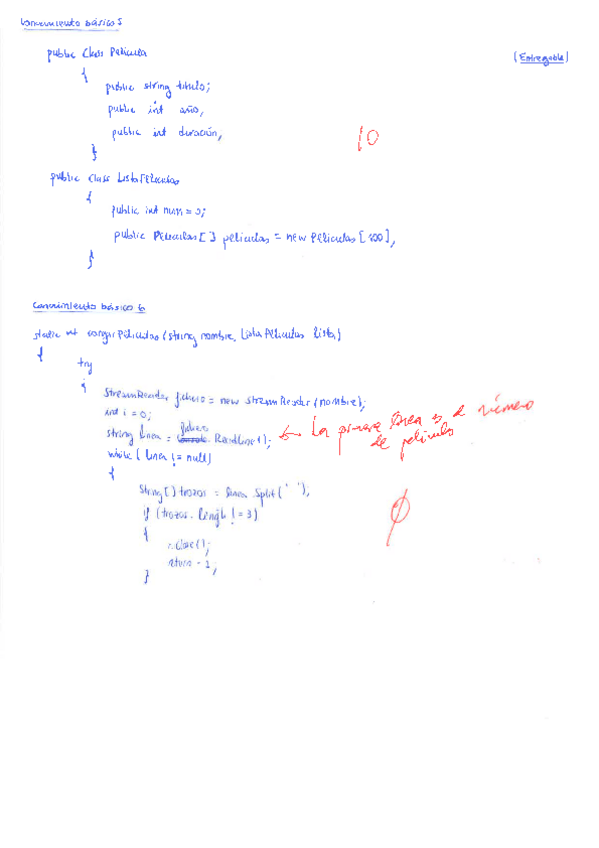 Conocimiento básico 5
(Entregable)
public Class Película
{
public string titulo;
public int año;
public int duración;
}
10
public class ListaPeliculas
{
public int num = 0;
public Peliculas[] peliculas = new Peliculas[100];
}
Conocimiento básico 6
static int cargarPeliculas (string nombre, ListaPeliculas lista)
{
try
{
StreamReader fichero = new StreamReader (nombre);
int i = 0;
string linea = fichero.ReadLine();
← La primera línea es el número
de películas
while (linea != null)
{
String[] trozos = linea.Split(' ');
if (trozos.Length != 3)
{
.close();
return -1;
}
0